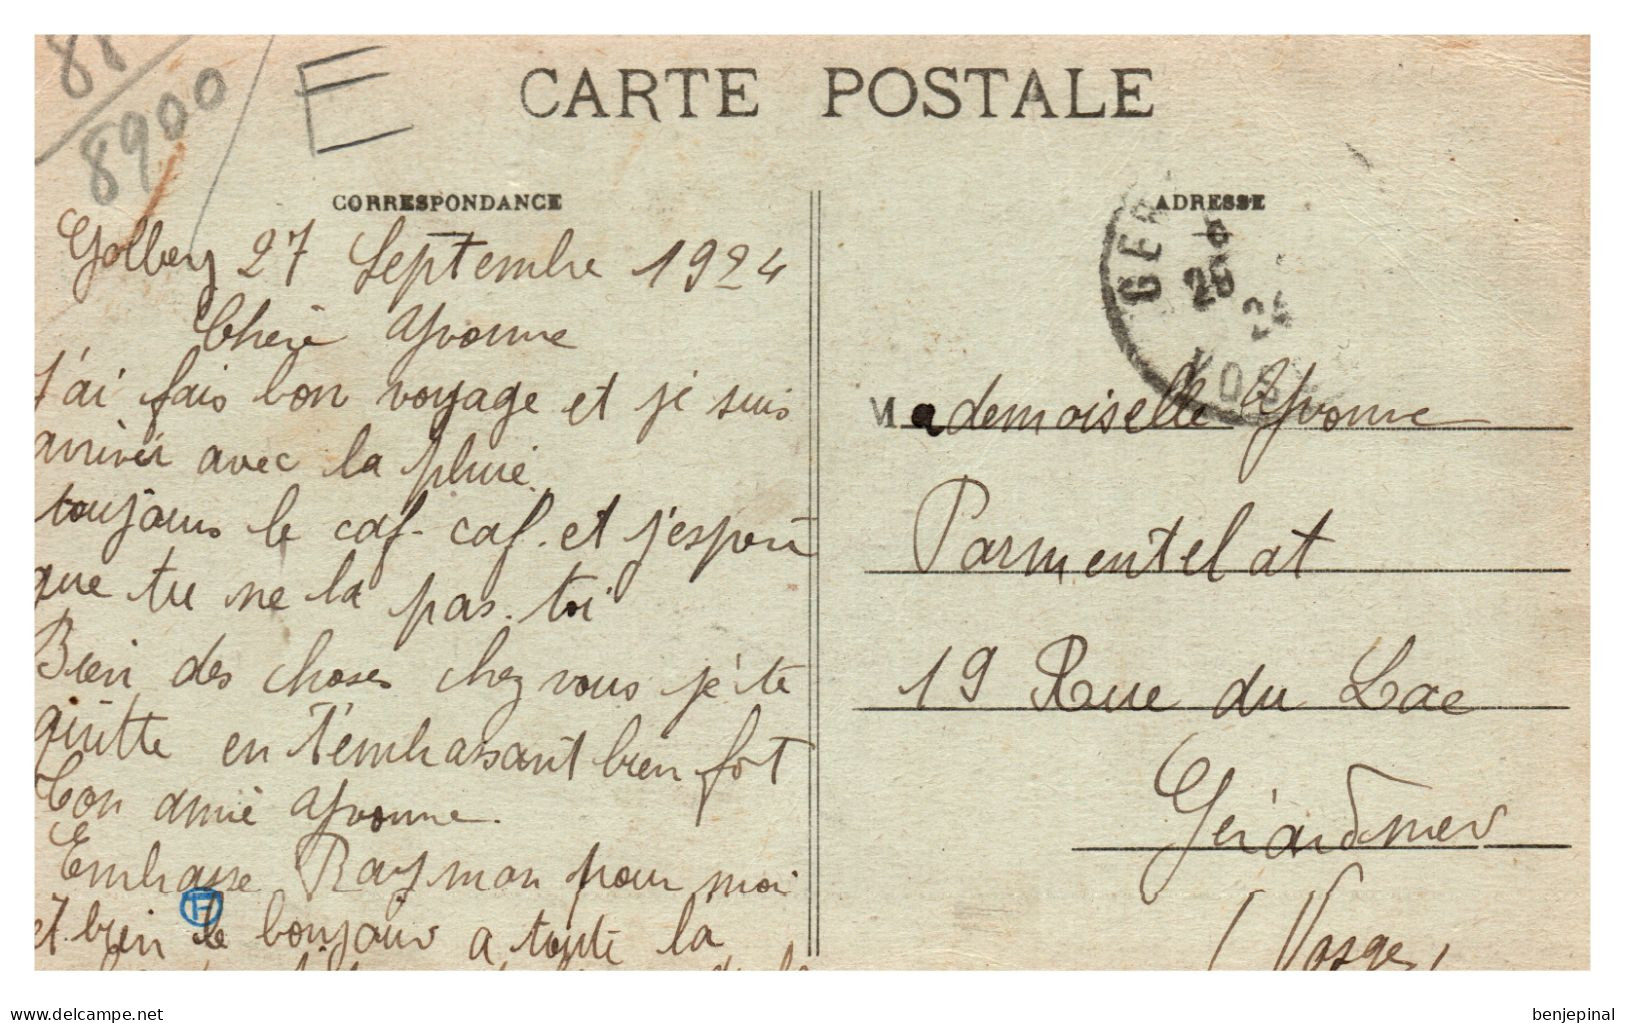 88
8900
E
CARTE POSTALE
CORRESPONDANCE
Golbey 27 Septembre 1924
Chère Yvonne
J'ai fais bon voyage et je suis
arriver avec la pluie.
toujours le caf-caf. et j'espère
que tu ne la pas. toi
Bien des choses chez vous je te
quitte en t'embrassant bien fort
Ton amie Yvonne.
Embrasse Raymon pour moi
et bien le bonjour a toute la
F
ADRESSE
GER
28
24
VOS
Mademoiselle Yvonne
Parmentelat
19 Rue du Lac
Gérardmer
(Vosges)
www.delcampe.net
benjepinal